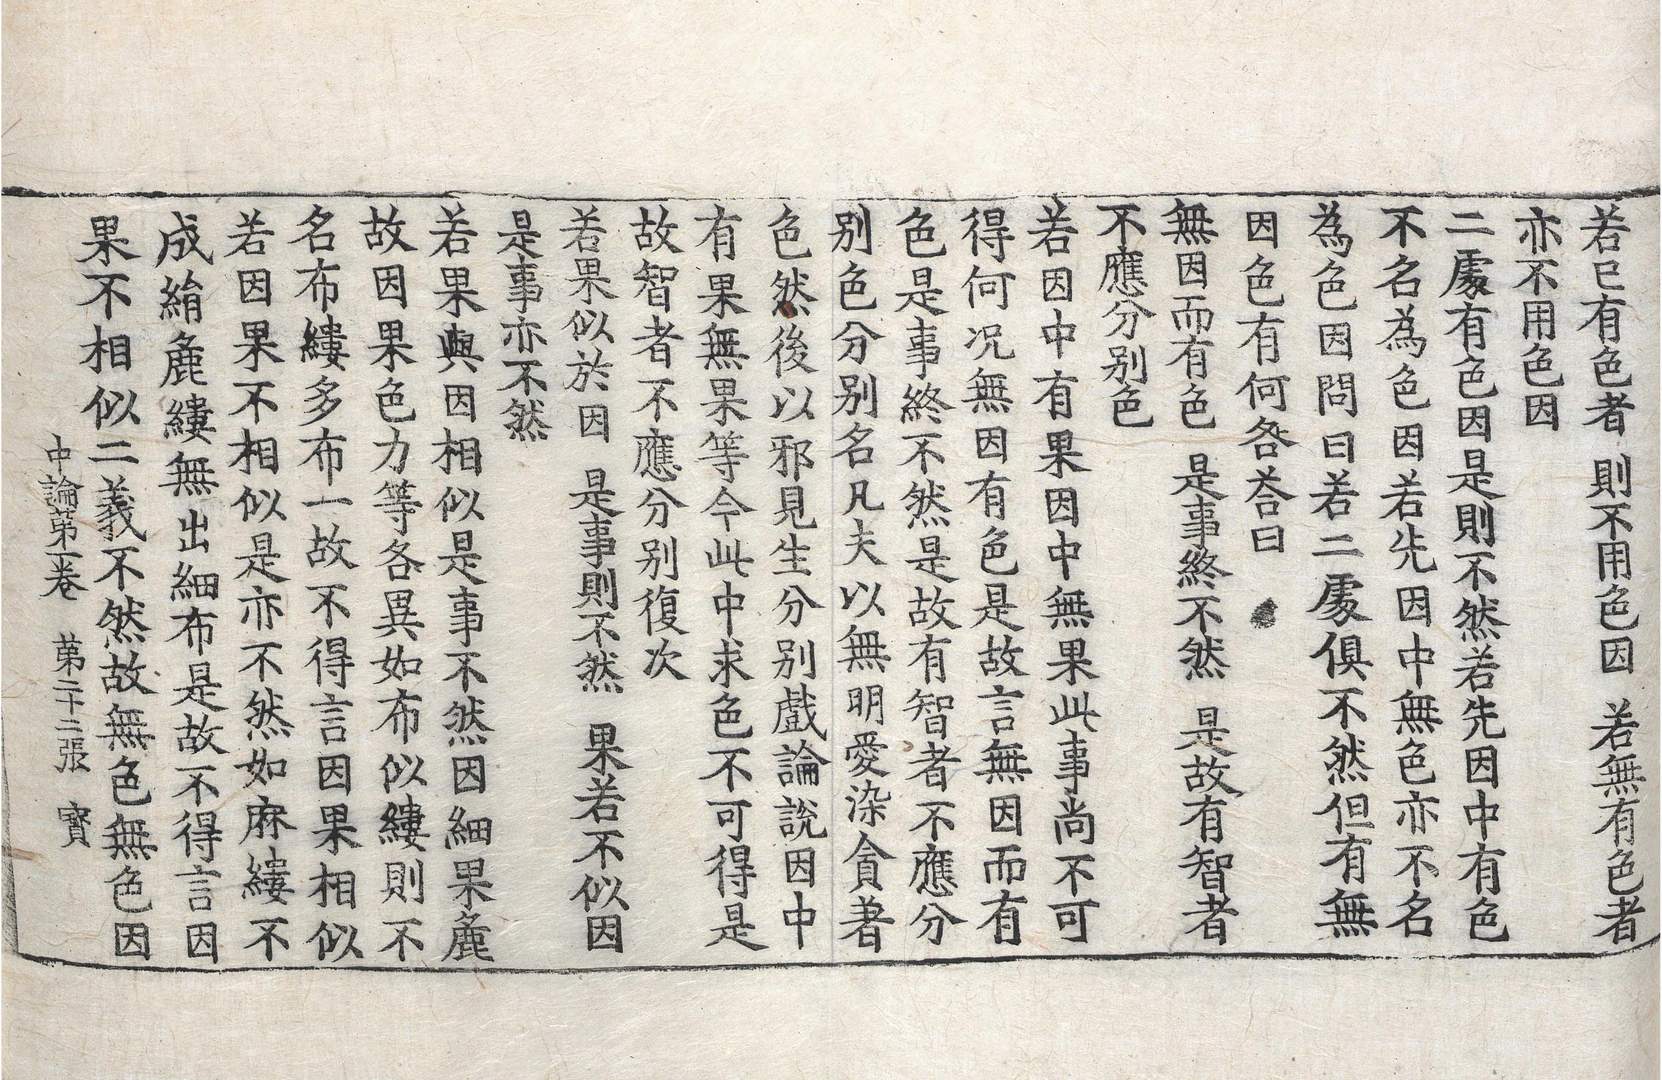 若已有色者　則不用色因　若無有色者
亦不用色因
二處有色因是則不然若先因中有色
不名為色因若先因中無色亦不名
為色因問曰若二處俱不然但有無
因色有何咎荅曰
無因而有色　是事終不然　是故有智者
不應分别色
若因中有果因中無果此事尚不可
得何況無因有色是故言無因而有
色是事終不然是故有智者不應分
别色分别名凡夫以無明愛染貪著
色然後以邪見生分别戲論說因中
有果無果等今此中求色不可得是
故智者不應分别復次
若果似於因　是事則不然　果若不似因
是事亦不然
若果與因相似是事不然因細果麁
故因果色力等各異如布似縷則不
名布縷多布一故不得言因果相似
若因果不相似是亦不然如麻縷不
成絹麁縷無出細布是故不得言因
果不相似二義不然故無色無色因
中論第一卷　第二十二張　寳